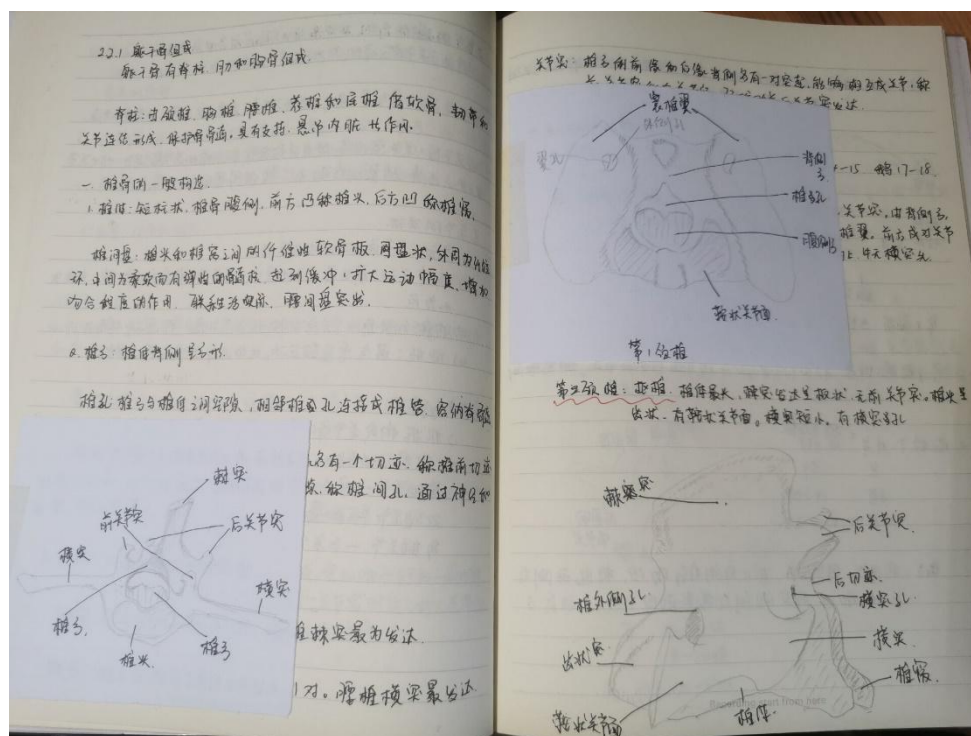 2.2.1 躯干骨组成
躯干骨有脊柱、肋和胸骨组成.
脊柱:由颈椎、胸椎、腰椎、荐椎和尾椎借软骨、韧带和
关节连结形成.保护脊髓,具有支持、悬吊内脏 作用.
一.椎骨的一般构造.
1.椎体:短柱状,椎骨腹侧,前方凸称椎头,后方凹称椎窝,
椎间盘:椎头和椎窝之间的纤维性软骨板.圆盘状,外周为纤维
环,中间为柔软而有弹性的髓核.起到缓冲,扩大运动幅度、增加
吻合程度的作用. 腰间盘突出.
2.椎弓:椎体背侧呈弓形.
椎孔 椎弓与椎体之间空隙,相邻椎 孔连接成椎管.容纳脊髓
各有一个切迹.称椎前切迹
称椎间孔,通过神经和
棘突
前关节突
后关节突
横突
横突
椎弓
椎头
椎弓
椎棘突最为发达.
对。腰椎横突最发达
关节突:椎弓前 缘和后缘背侧各有一对突起,能 成关节,称
荐椎翼
翼孔
背侧弓
椎孔
腹侧弓
鞍状关节面
第1颈椎
-15 鹅17-18.
关节突,由背侧弓,
椎翼.前方成对关节
横突孔
第2颈椎:枢椎.椎体最长,棘突发达呈板状.无前关节突。椎头呈
齿状.有鞍状关节面。横突短小.有横突孔
棘突
后关节突
后切迹.
椎外侧孔
横突孔
横突
齿状突
椎窝.
鞍状关节面
椎体